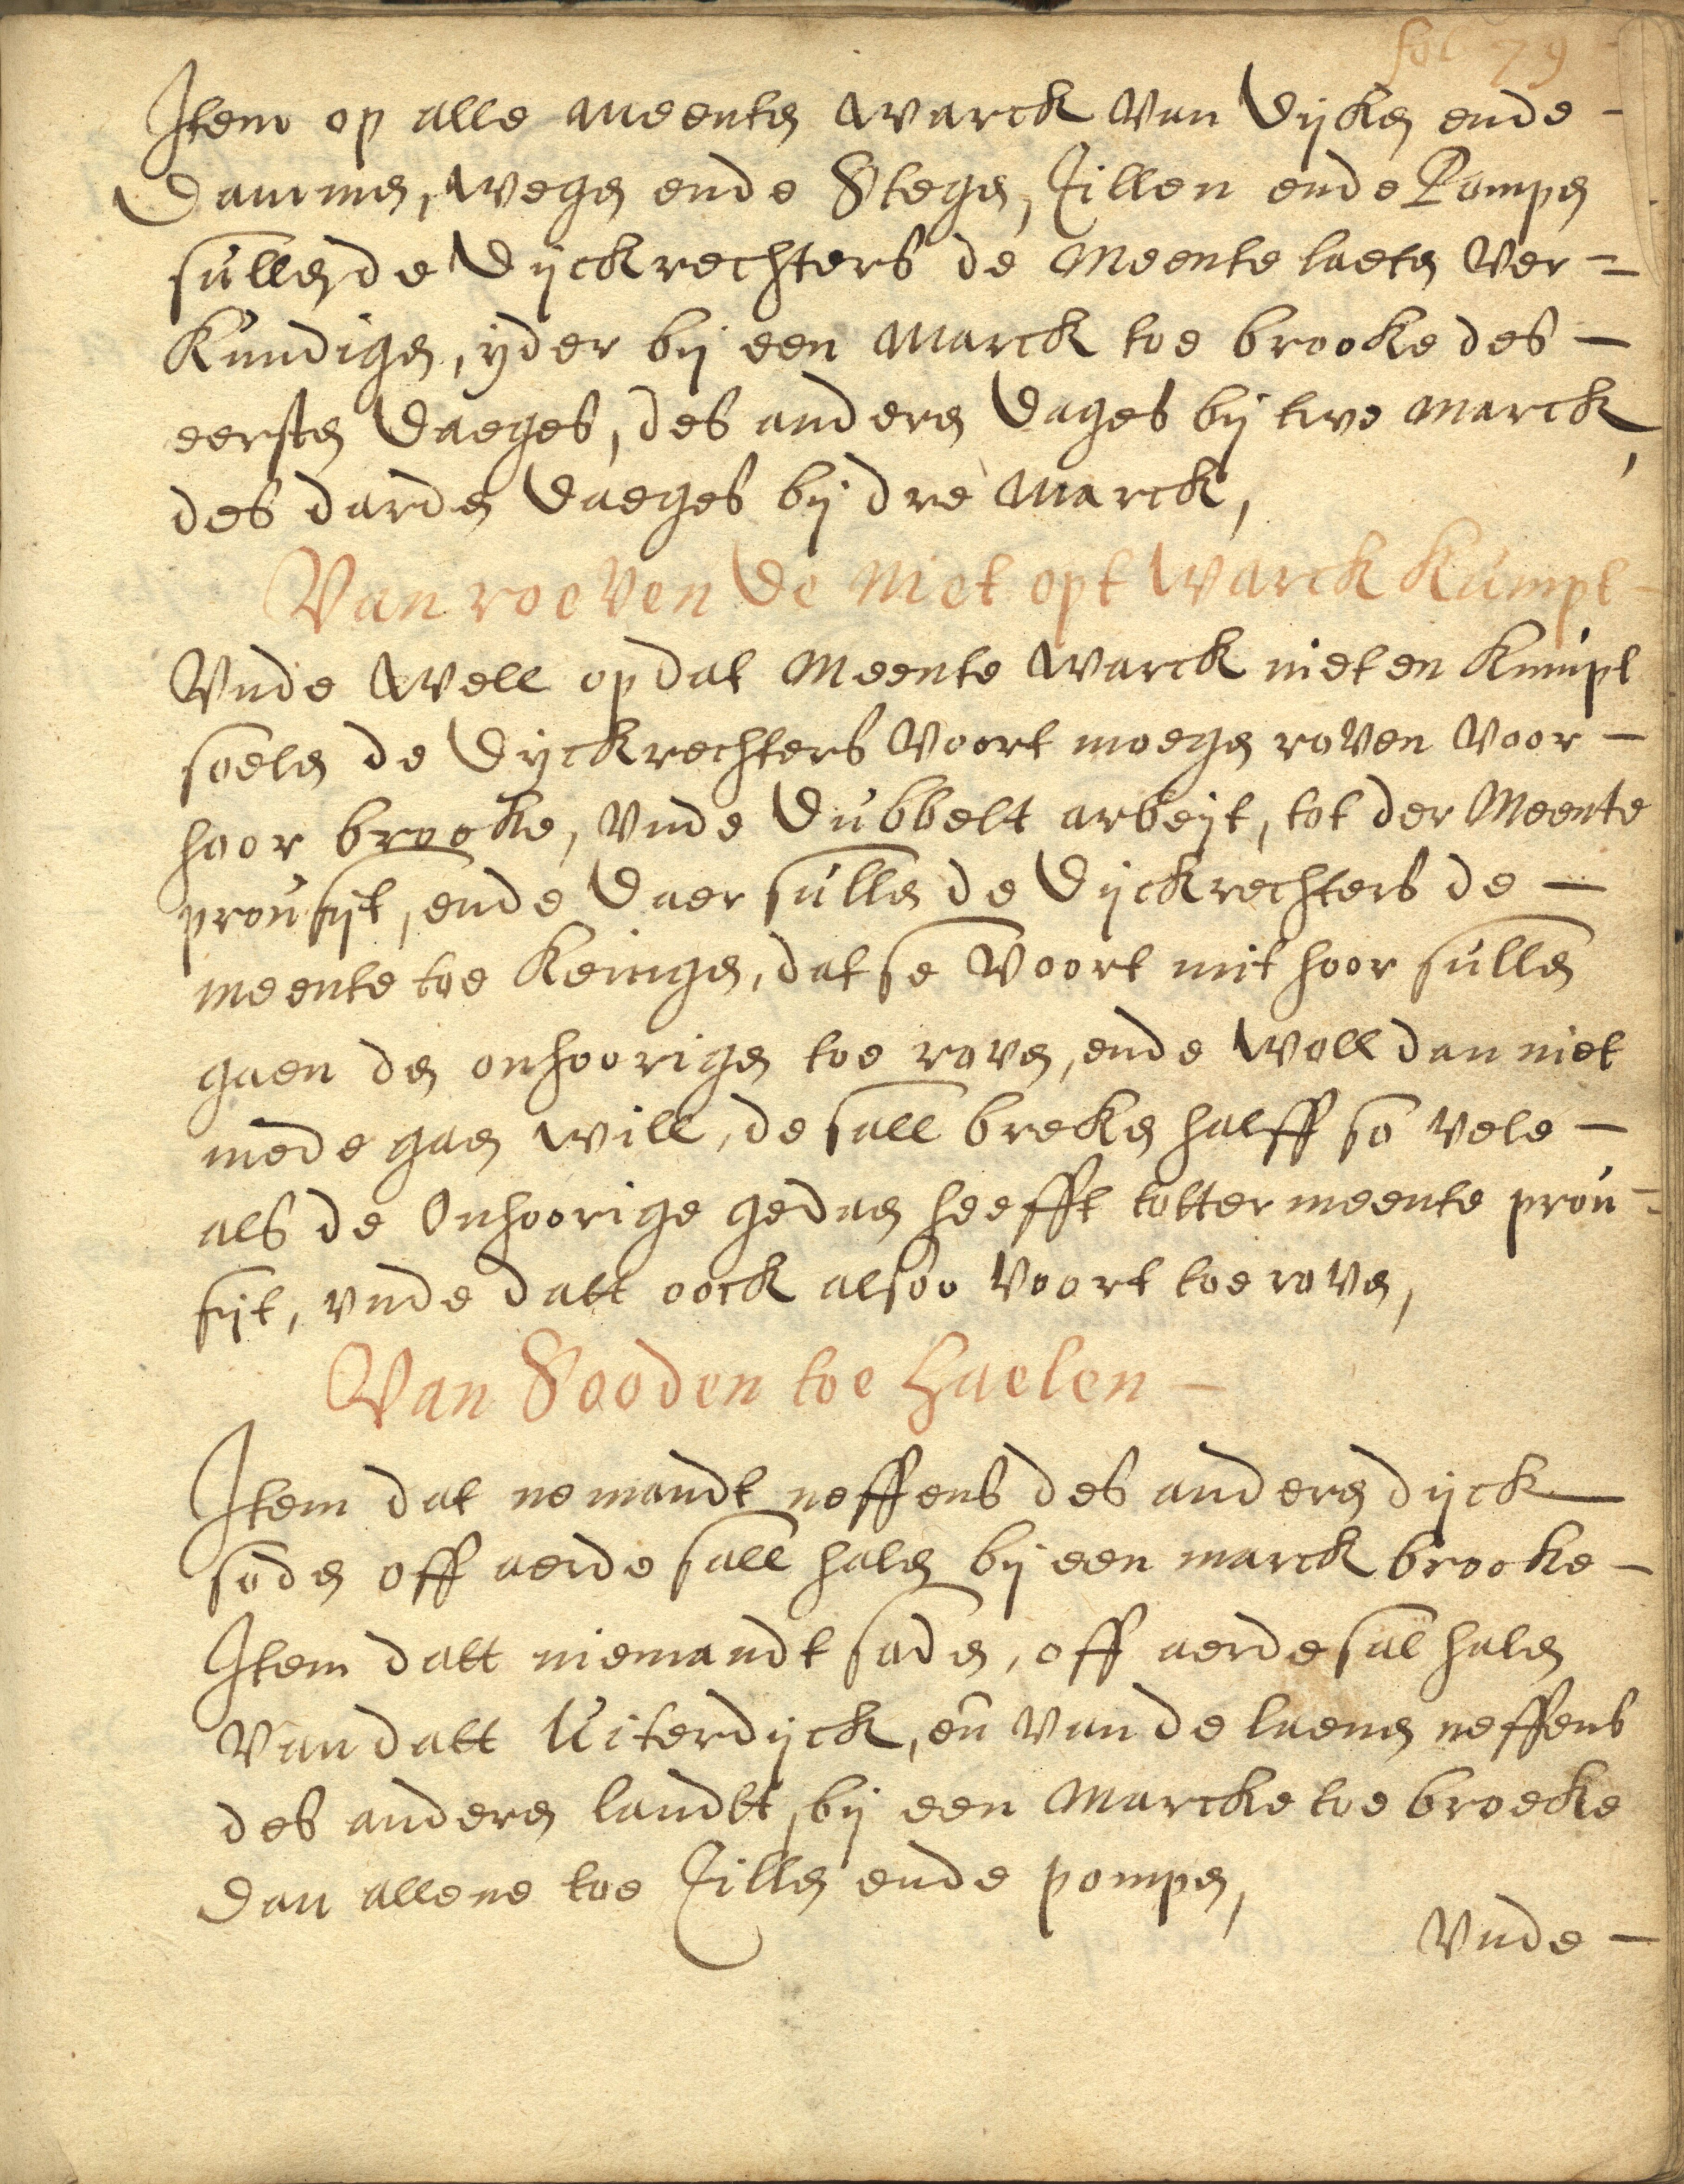 fol 79
Item op alle meenten warck van dijken ende -
dammen, wegen ende Stegen, Zillen ende Pompen
sullen de dijckrechters de Meente laeten ver=
kundigen, ijder bij een marck toe brooke des -
eersten daeges, des anderen dages bij twe marck,
des darden daeges bij dre marck,
Van roeven de niet opt warck kumpt -
Vnde well op dat meente warck niet en kumpt
soelen de dijckrechters voort moegen roven voor -
hoor broeke, vnde dubbelt arbeijt, tot der Meente
proufijt, ende daer sullen de dijckrechters de -
meente toe keingen, dat se voort mit hoor sullen
gaen den onhoorigen toe roven, ende woll dan niet
mede gaen will, de sall breken halff so vele -
als de onhoorige gedaen heefft totter meente prou=
fijt, vnde datt oock alsoo voort toe roven,
Van Sooden toe haelen -
Item dat nemandt neffens des anderen dijck
soden off aerde sall halen bij een marck broocke -
Item datt niemandt soden, off aerde sal halen
van datt Uiterdijck, en van de laenen neffens
des anderen landtt, bij een marcke toe broecke
dan allene toe Zillen ende pompen,
Vnde -